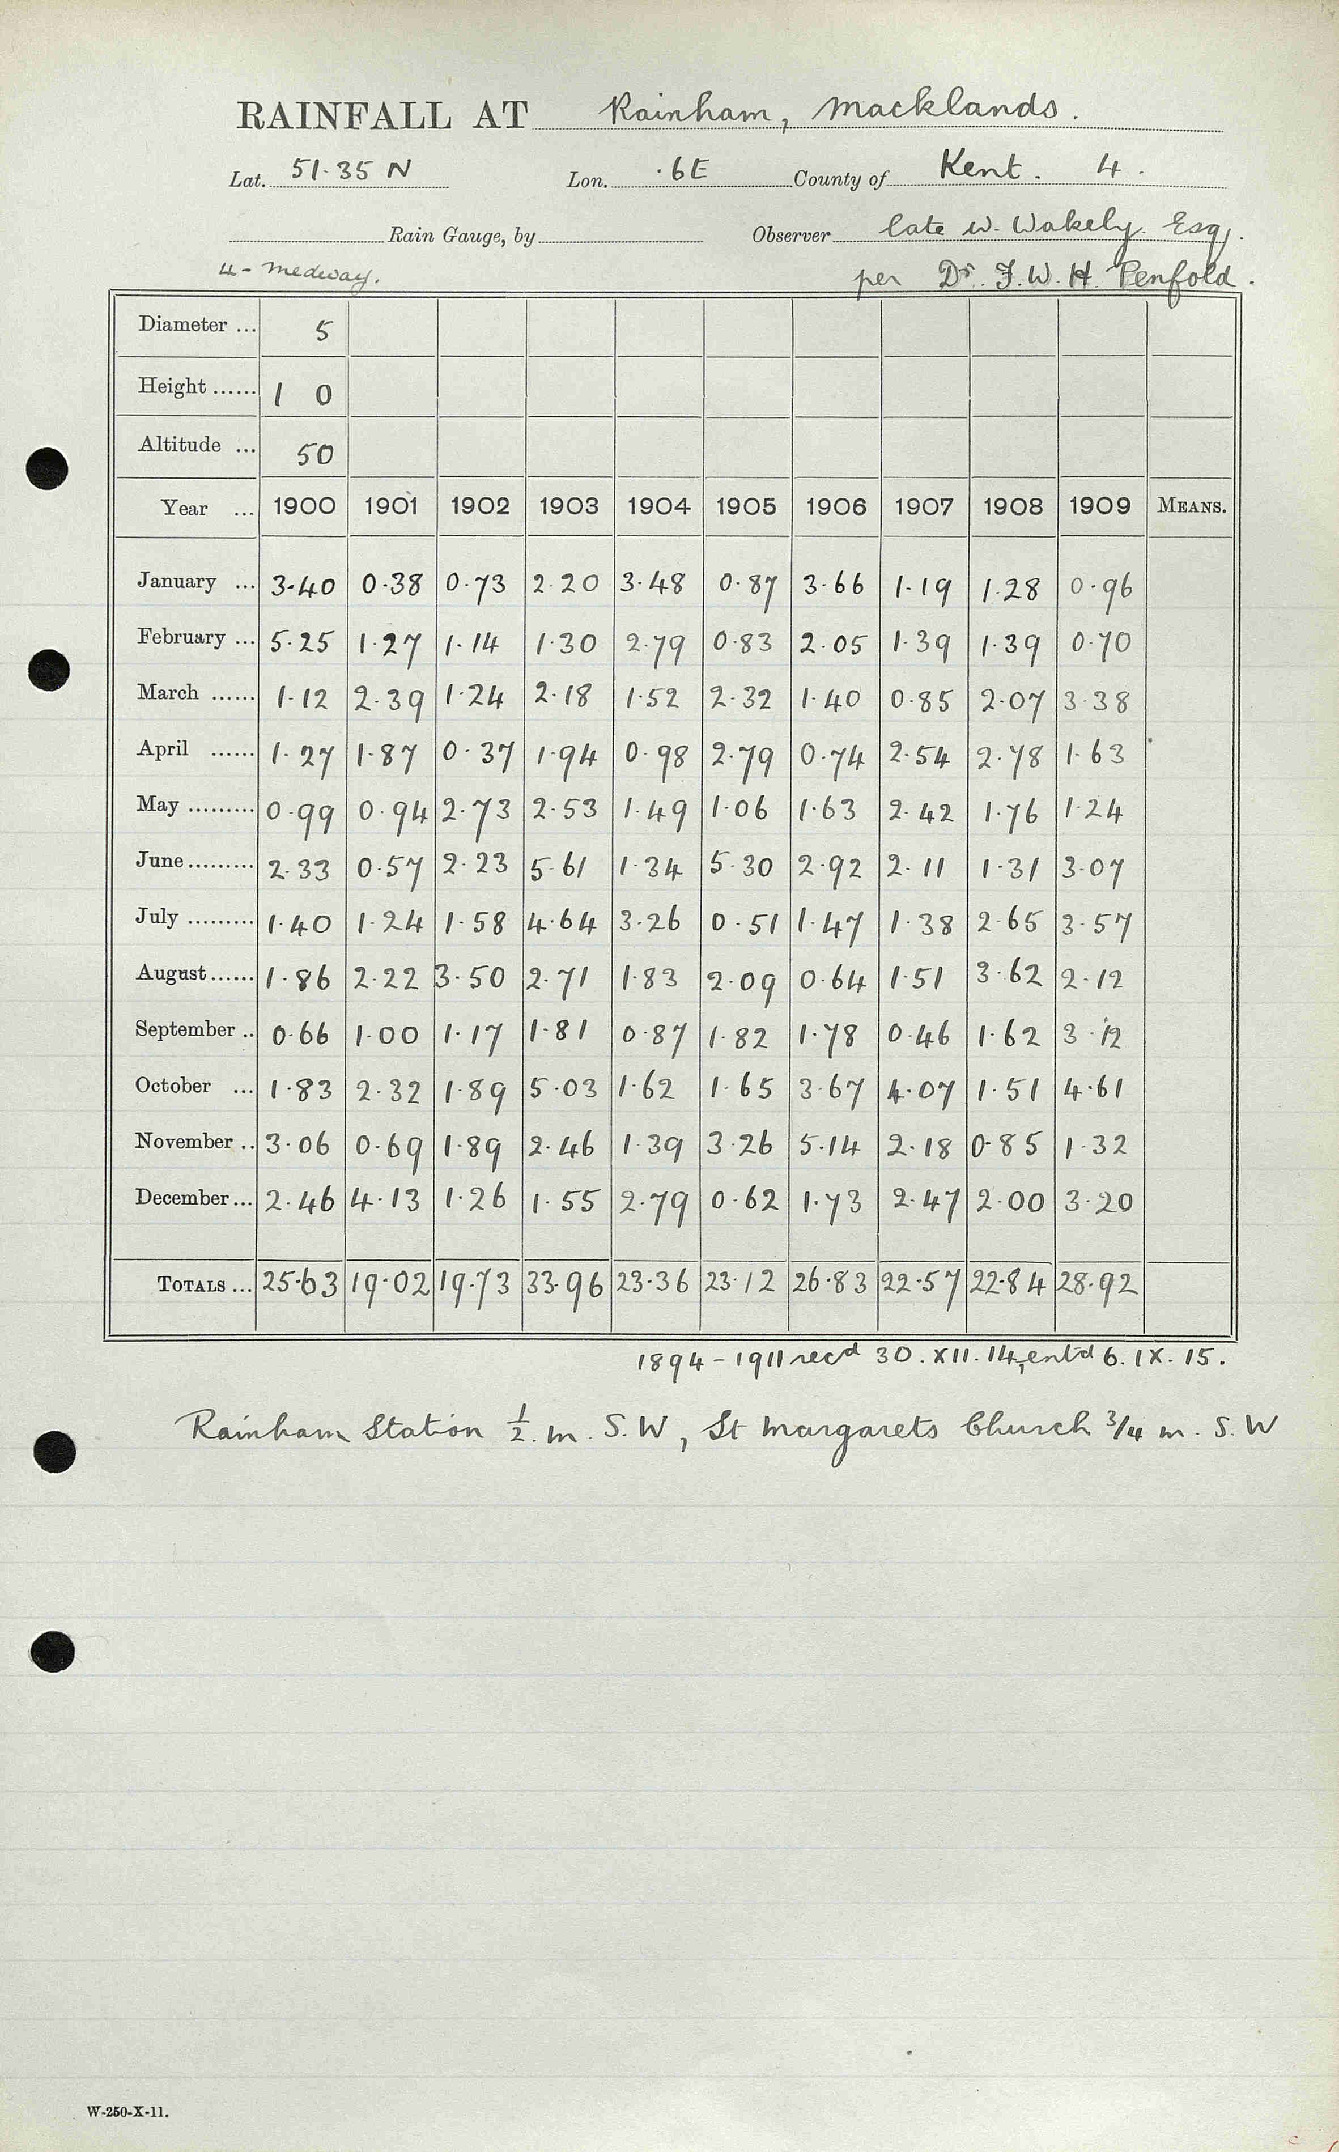 RAINFALL AT Rainham, Macklands.
Lat. 51.35 N Lon. .6E County of Kent. 4.
Rain Gauge, by Observer late W. Wakely Esq.
4 - Medway. per Dr. F. W. H. Penfold.
Diameter ... 5
Height ...... 1 0
Altitude ... 50
Year ... 1900 1901 1902 1903 1904 1905 1906 1907 1908 1909 MEANS.
January ... 3.40 0.38 0.73 2.20 3.48 0.87 3.66 1.19 1.28 0.96
February ... 5.25 1.27 1.14 1.30 2.79 0.83 2.05 1.39 1.39 0.70
March ...... 1.12 2.39 1.24 2.18 1.52 2.32 1.40 0.85 2.07 3.38
April ...... 1.27 1.87 0.37 1.94 0.98 2.79 0.74 2.54 2.78 1.63
May ......... 0.99 0.94 2.73 2.53 1.49 1.06 1.63 2.42 1.76 1.24
June ......... 2.33 0.57 2.23 5.61 1.34 5.30 2.92 2.11 1.31 3.07
July ......... 1.40 1.24 1.58 4.64 3.26 0.51 1.47 1.38 2.65 3.57
August ...... 1.86 2.22 3.50 2.71 1.83 2.09 0.64 1.51 3.62 2.12
September .. 0.66 1.00 1.17 1.81 0.87 1.82 1.78 0.46 1.62 3.12
October ... 1.83 2.32 1.89 5.03 1.62 1.65 3.67 4.07 1.51 4.61
November .. 3.06 0.69 1.89 2.46 1.39 3.26 5.14 2.18 0.85 1.32
December ... 2.46 4.13 1.26 1.55 2.79 0.62 1.73 2.47 2.00 3.20
TOTALS ... 25.63 19.02 19.73 33.96 23.36 23.12 26.83 22.57 22.84 28.92
1894 - 1911 recd 30. XII. 14, entd 6. IX. 15.
Rainham Station ½ m. S.W, St Margarets Church ¾ m. S.W
W-250-X-11.